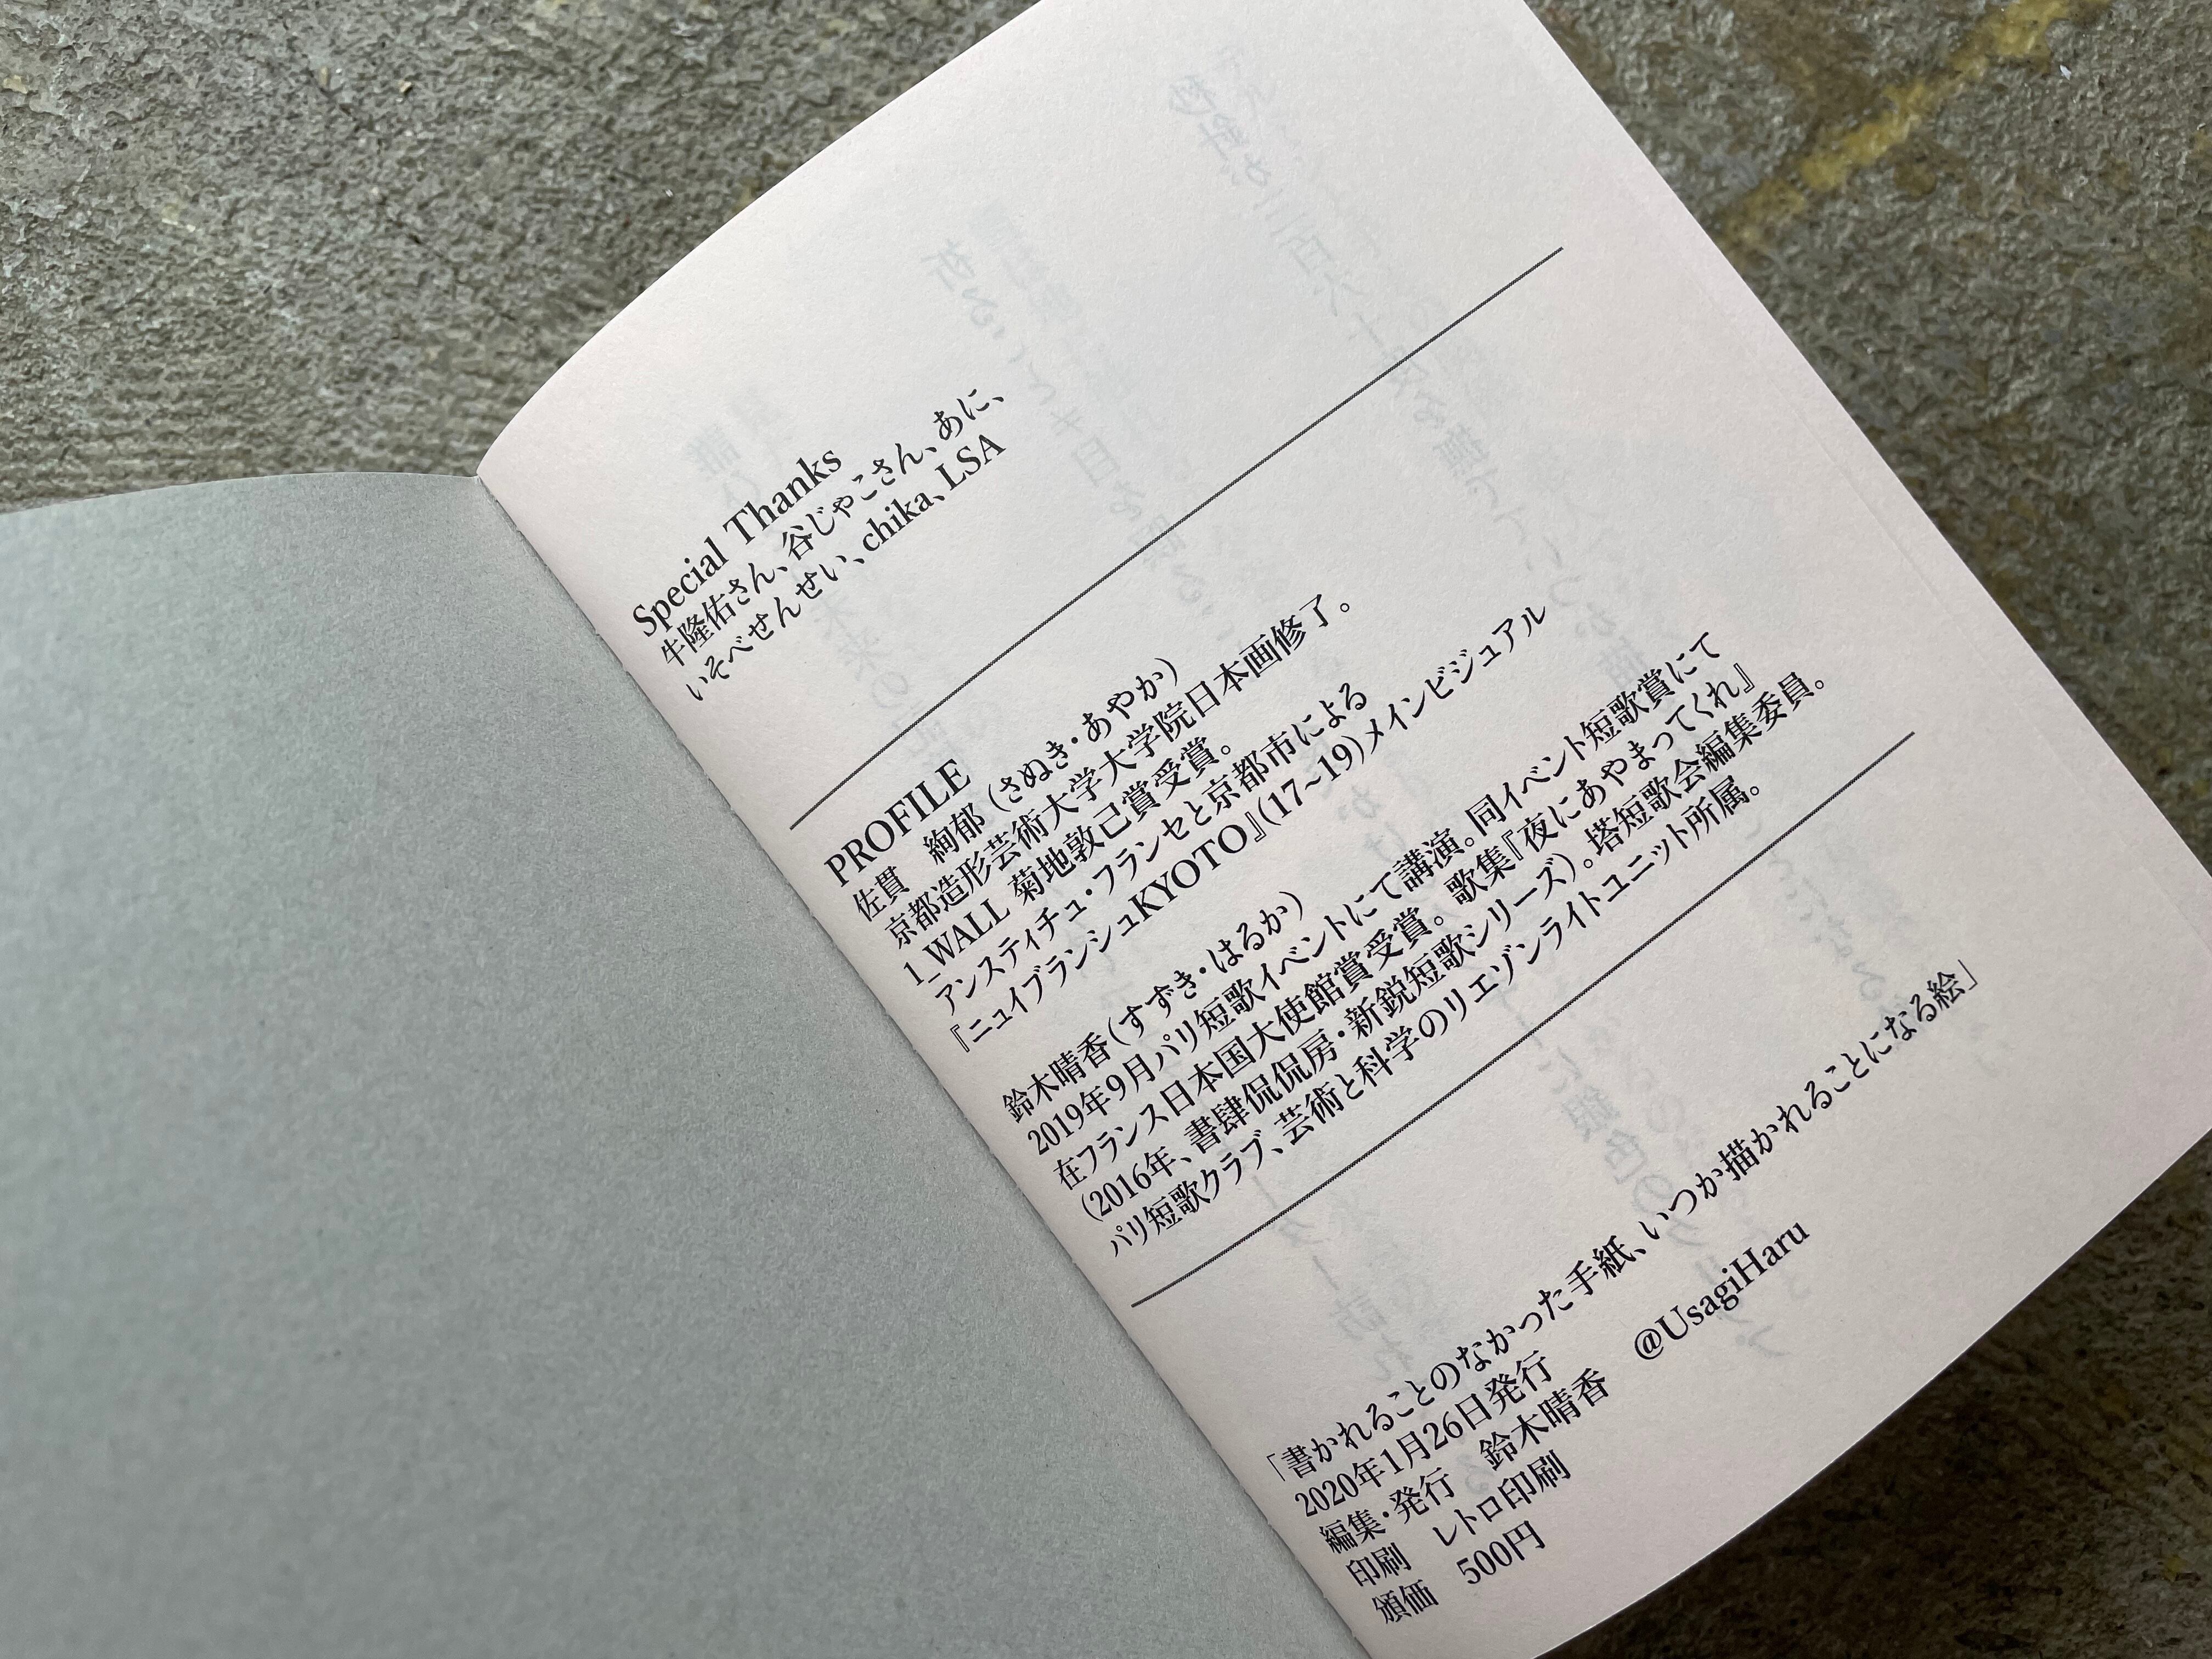 Special Thanks
牛隆佑さん、谷じゃこさん、あに、
いそべせんせい、chika、LSA
PROFILE
佐貫　絢郁（さぬき・あやか）
京都造形芸術大学大学院日本画修了。
1_WALL 菊地敦己賞受賞。
アンスティチュ・フランセと京都市による
『ニュイブランシュKYOTO』(17~19)メインビジュアル
鈴木晴香（すずき・はるか）
2019年9月パリ短歌イベントにて講演。同イベント短歌賞にて
在フランス日本国大使館賞受賞。歌集『夜にあやまってくれ』
(2016年、書肆侃侃房・新鋭短歌シリーズ)。塔短歌会編集委員。
パリ短歌クラブ、芸術と科学のリエゾンライトユニット所属。
「書かれることのなかった手紙、いつか描かれることになる絵」
2020年1月26日発行
編集・発行　鈴木晴香　@UsagiHaru
印刷　レトロ印刷
頒価　500円